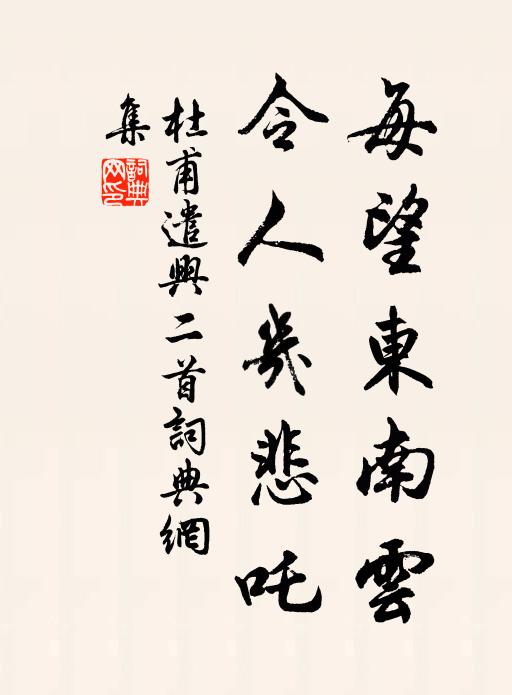 每望東南雲
令人幾悲吒
杜甫遣興二首詞典網
集
詞典網印